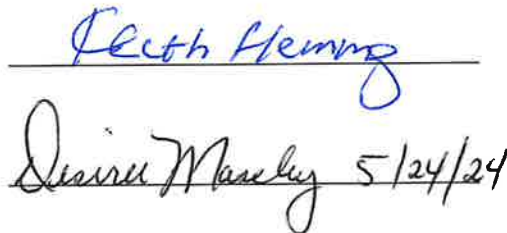 Keith Fleming
Desiree Maseley 5/24/24